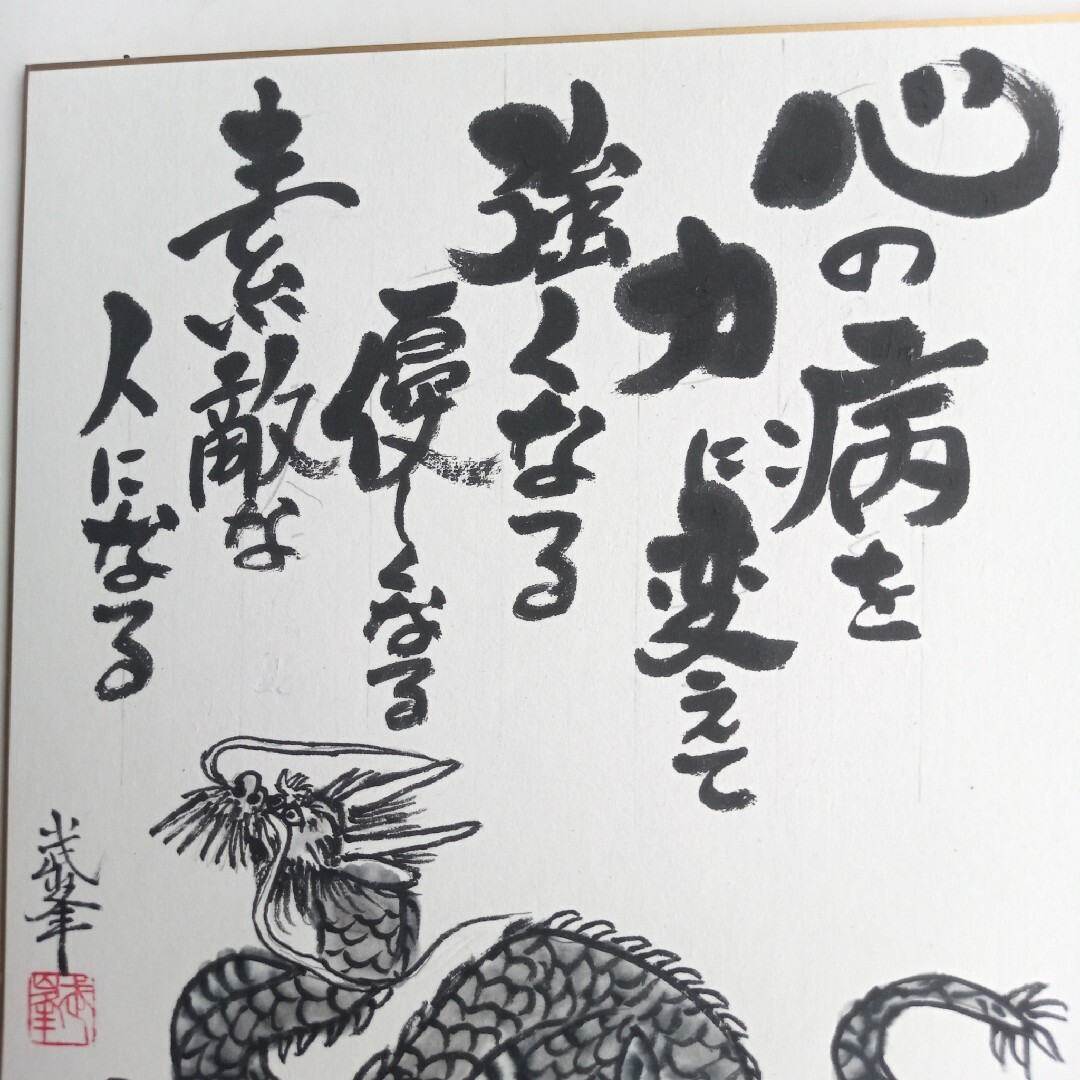 心の病を
力に変えて
強くなる
優しくなる
素敵な
人になる
武峯